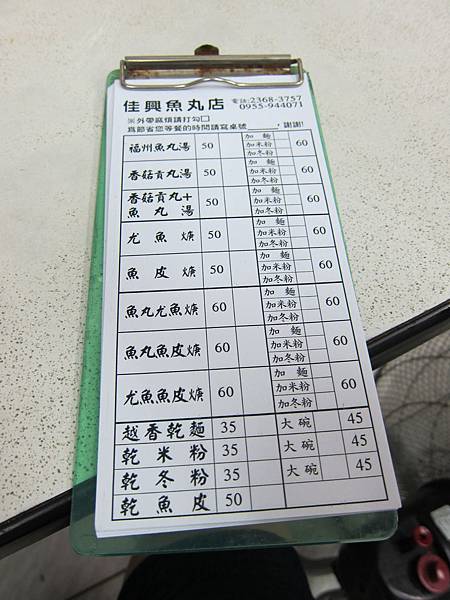 佳興魚丸店 電話:2368-3757
0955-944071
※外帶麻煩請打勾□
為節省您等餐的時間請寫桌號______,謝謝!
福州魚丸湯 50 加麵 加米粉 加冬粉 60
香菇貢丸湯 50 加麵 加米粉 加冬粉 60
香菇貢丸+
魚丸湯 50 加麵 加米粉 加冬粉 60
尤魚焿 50 加麵 加米粉 加冬粉 60
魚皮焿 50 加麵 加米粉 加冬粉 60
魚丸尤魚焿 60 加麵 加米粉 加冬粉 60
魚丸魚皮焿 60 加麵 加米粉 加冬粉 60
尤魚魚皮焿 60 加麵 加米粉 加冬粉 60
越香乾麵 35 大碗 45
乾米粉 35 大碗 45
乾冬粉 35 大碗 45
乾魚皮 50